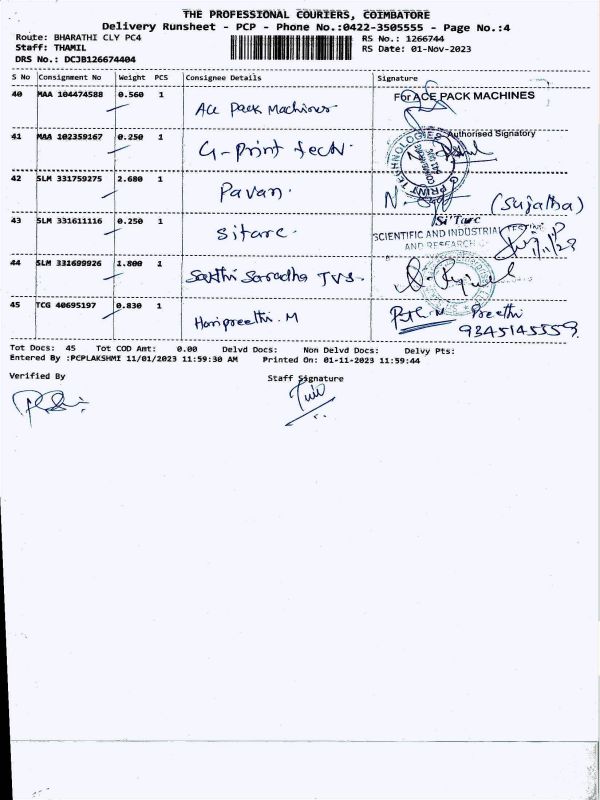 THE PROFESSIONAL COURIERS, COIMBATORE
Delivery Runsheet - PCP - Phone No.:0422-3505555 - Page No.:4
Route: BHARATHI CLY PC4 RS No.: 1266744
Staff: THAMIL RS Date: 01-Nov-2023
DRS No.: DCJB126674404
S No Consignment No Weight PCS Consignee Details Signature
40 MAA 104474588 0.560 1 Ace Pack Machines For ACE PACK MACHINES
Authorised Signatory
41 MAA 102359167 0.250 1 G-Print Tech
42 SLM 331759275 2.680 1 Pavan. (Sujatha)
43 SLM 331611116 0.250 1 Sitarc. Si'Tarc
SCIENTIFIC AND INDUSTRIAL TESTING
AND RESEARCH
44 SLM 331699926 1.800 1 Sakthi Saradha TVS.
45 TCG 40695197 0.830 1 Haripreethi. M Preethi
9345145559.
Tot Docs: 45 Tot COD Amt: 0.00 Delvd Docs: Non Delvd Docs: Delvy Pts:
Entered By :PCPLAKSHMI 11/01/2023 11:59:30 AM Printed On: 01-11-2023 11:59:44
Verified By Staff Signature